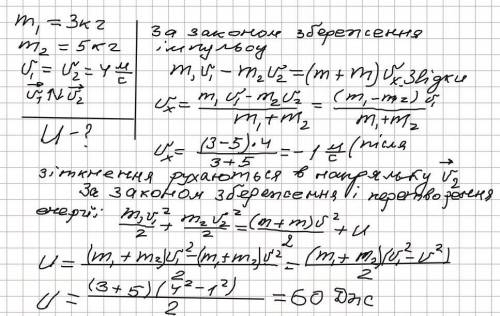 m₁ = 3кг
m₂ = 5кг
v₁ = v₂ = 4 м/с
v₁⃗ ↑↓ v₂⃗
U - ?
За законом збереження
імпульсу
m₁v₁ - m₂v₂ = (m + m)vₓ. Звідки
vₓ = (m₁v₁ - m₂v₂)/(m₁ + m₂) = (m₁ - m₂)v₁/(m₁ + m₂)
vₓ = (3-5)·4/(3+5) = -1 м/с (після
зіткнення рухаються в напрямку v₂⃗
За законом збереження і перетворення
енергії: m₁v²/2 + m₂v₂²/2 = (m + m)v²/2 + U
U = ((m₁ + m₂)v₁² - (m₁ + m₂)v²)/2 = (m₁ + m₂)(v₁² - v²)/2
U = (3+5)(4² - 1²)/2 = 60 Дж